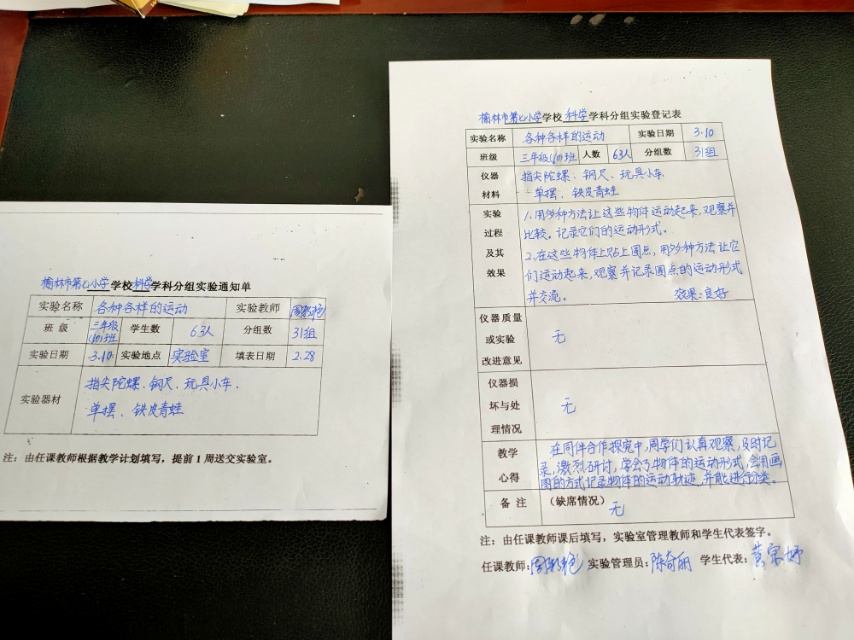 榆林市第七小学学校科学学科分组实验通知单
实验名称 各种各样的运动 实验教师
班级 三年级(10)班 学生数 63人 分组数 31组
实验日期 3.10 实验地点 实验室 填表日期 2.28
实验器材 指尖陀螺、钢尺、玩具小车、
单摆、铁皮青蛙
注：由任课教师根据教学计划填写，提前1周送交实验室。
榆林市第七小学学校科学学科分组实验登记表
实验名称 各种各样的运动 实验日期 3.10
班级 三年级(10)班 人数 63人 分组数 31组
仪器材料 指尖陀螺、钢尺、玩具小车、
单摆、铁皮青蛙
实验过程及其效果 1.用多种方法让这些物体运动起来,观察并
比较。记录它们的运动形式。
2.在这些物体上贴上圆点,用多种方法让它
们运动起来,观察并记录圆点的运动形式
并交流。 效果:良好
仪器质量或实验改进意见 无
仪器损坏与处理情况 无
教学心得 在同伴合作探究中,同学们认真观察,及时记
录,激烈研讨,学会了物体的运动形式,会用画
图的方式记录物体的运动轨迹,并能进行分类。
备注 (缺席情况) 无
注：由任课教师课后填写，实验室管理教师和学生代表签字。
任课教师: 实验管理员:陈奇丽 学生代表: